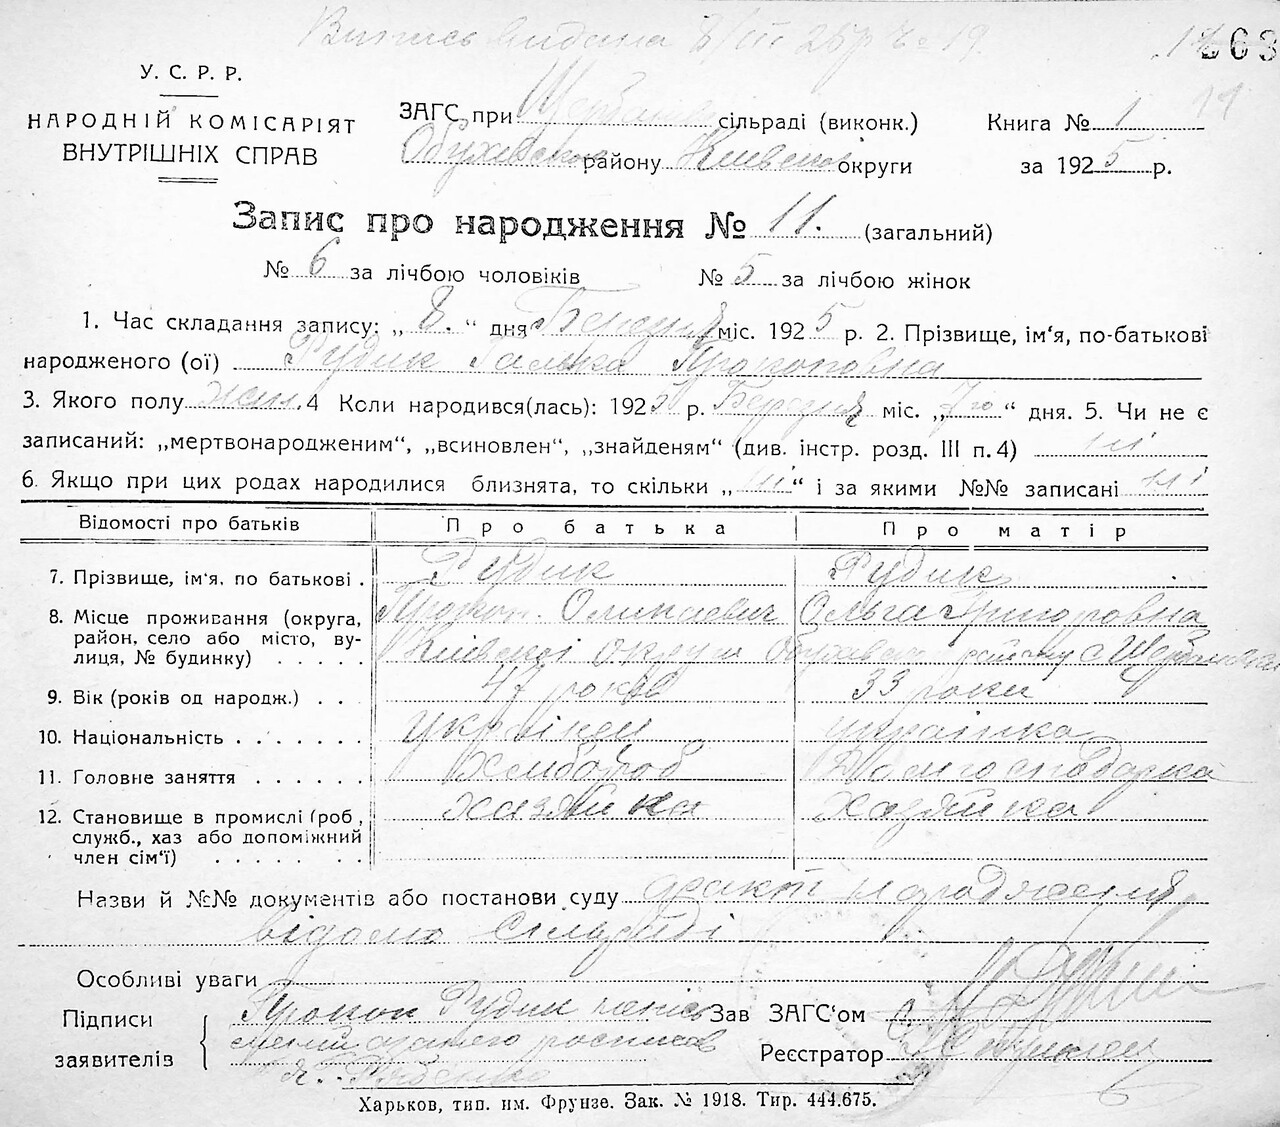 Випись видана 8/III 25 р № 19
У. С. Р. Р.
НАРОДНІЙ КОМІСАРІЯТ
ВНУТРІШНІХ СПРАВ
ЗАГС при сільраді (виконк.)
Обухівського району Київської округи
Книга № 1
за 1925 р.
Запис про народження № 11. (загальний)
№ 6 за лічбою чоловіків № 5 за лічбою жінок
1. Час складання запису: „8.“ дня Березня міс. 1925 р. 2. Прізвище, ім'я, по-батькові
народженого (ої) Рудик Галька Прокоповна
3. Якого полу жін. 4 Коли народився(лась): 1925 р. Березня міс. „7го“ дня. 5. Чи не є
записаний: „мертвонародженим“, „всиновлен“, „знайденям“ (див. інстр. розд. III п. 4) ні
6. Якщо при цих родах народилися близнята, то скільки „ні“ і за якими №№ записані ні
Відомості про батьків Про батька Про матір
7. Прізвище, ім'я, по батькові . Рудик Рудик
Прокоп. Ольга Григоровна
8. Місце проживання (округа,
район, село або місто, ву-
лиця, № будинку) . . . . . Київської округи Обухівского району с
9. Вік (років од народж.) . . . 47 років 33 роки
10. Національність . . . . . . . українец українка
11. Головне заняття . . . . . . Хлібороб Домгосподарка
12. Становище в промислі (роб., хазяйка хазяйка
служб., хаз або допоміжний
член сім'ї) . . . . . . .
Назви й №№ документів або постанови суду факт народження
відомо Сільраді
Особливі уваги
Підписи
заявителів
Прокоп Рудик
Зав ЗАГС'ом
Реєстратор
Харьков, тип. им. Фрунзе. Зак. № 1918. Тир. 444.675.